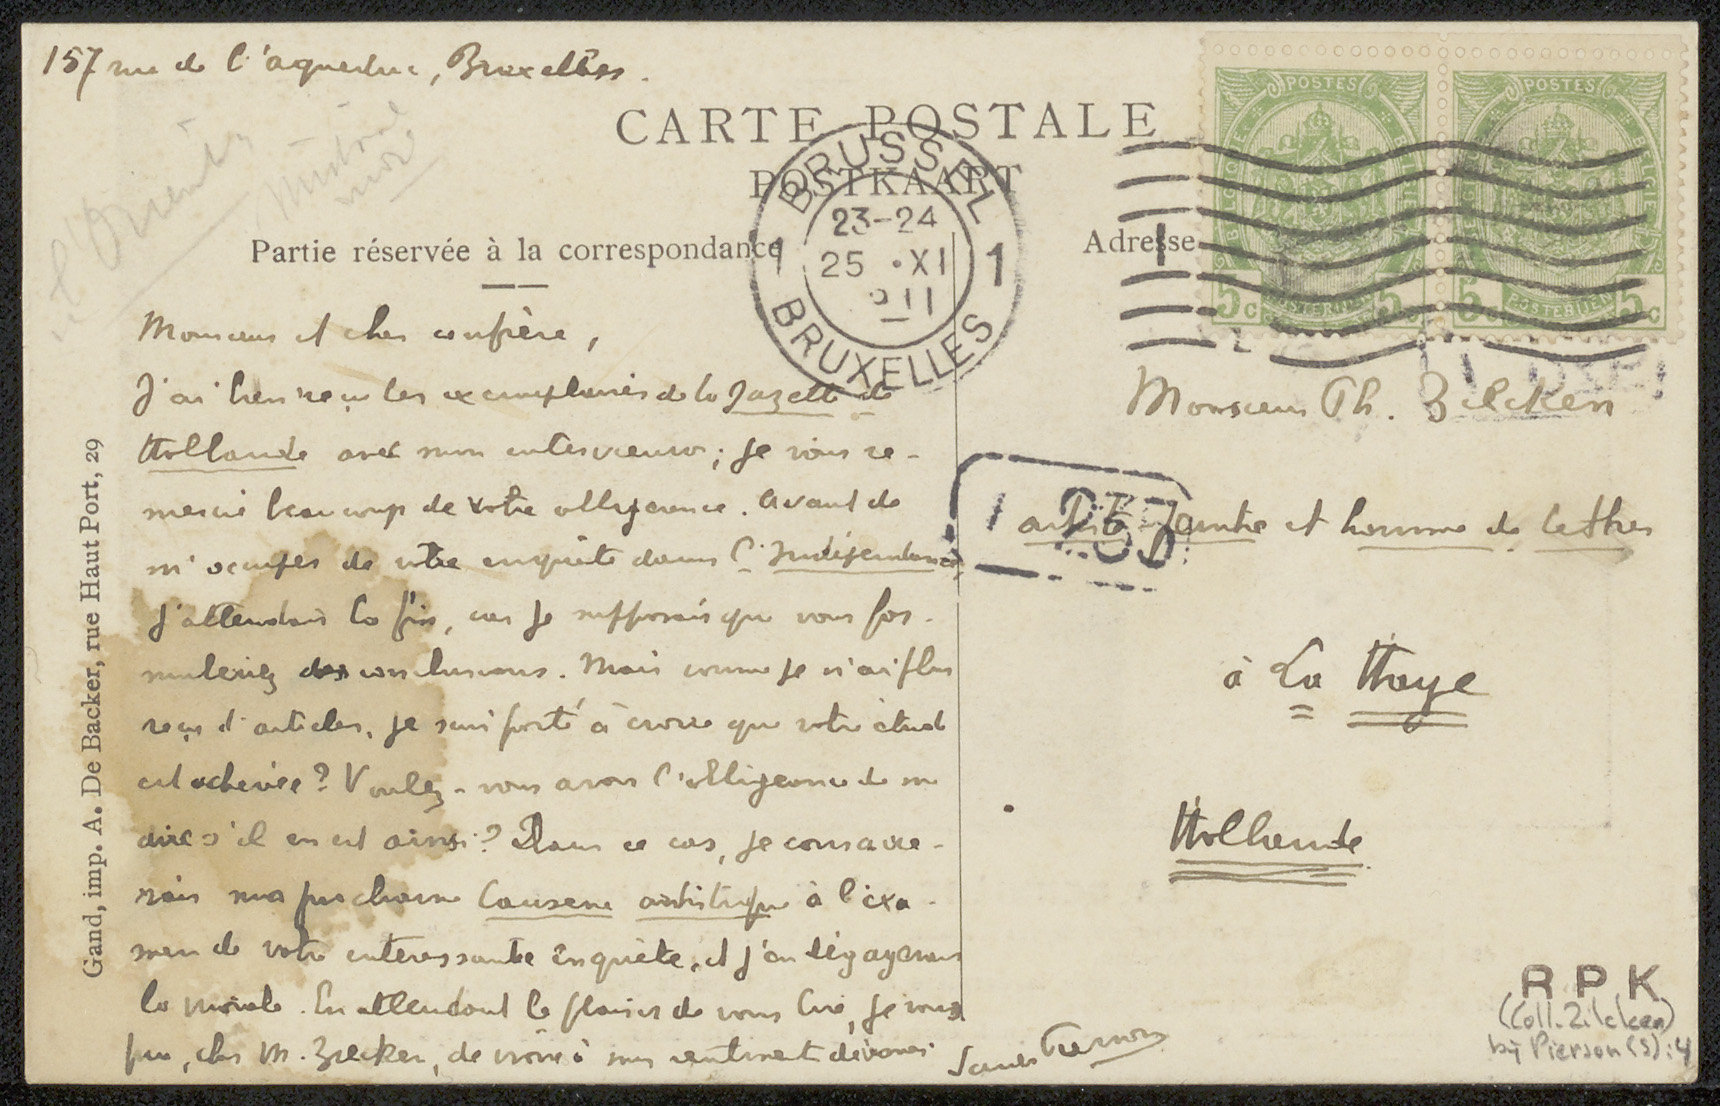 157 rue de l'aqueduc, Bruxelles.
CARTE POSTALE
POSTKAART
Partie réservée à la correspondance
Adresse
BRUSSEL
1 1
23-24
25 ·XI
BRUXELLES
POSTES
BELGIQUE BELGIE
5c POSTERIJEN 5c
POSTES
BELGIQUE BELGIE
5c POSTERIJEN 5c
Monsieur et cher confrère,
J'ai bien reçu les exemplaires de la Gazette de
Hollande avec mon interview; je vous re-
mercie beaucoup de votre obligeance. Avant de
m'occuper de votre enquête dans l'Indépendance,
j'attendais la fin, car je supposais que vous for-
muleriez des conclusions. Mais comme je n'ai plus
reçu d'articles, je suis porté à croire que votre étude
est achevée? Voulez-vous avoir l'obligeance de me
dire s'il en est ainsi? Dans ce cas, je consacre-
rais ma prochaine Causerie artistique à l'exa-
men de votre intéressante enquête, et j'en dégagerais
la morale. En attendant le plaisir de vous lire, je vous
prie, cher M. Zilcken, de croire à mes sentiments dévoués
Monsieur Ph. Zilcken
artiste peintre et homme de lettres
à La Haye
Hollande
Gand, imp. A. De Backer, rue Haut Port, 29
R P K
(Coll. Zilcken)
bij Pierson (S):4